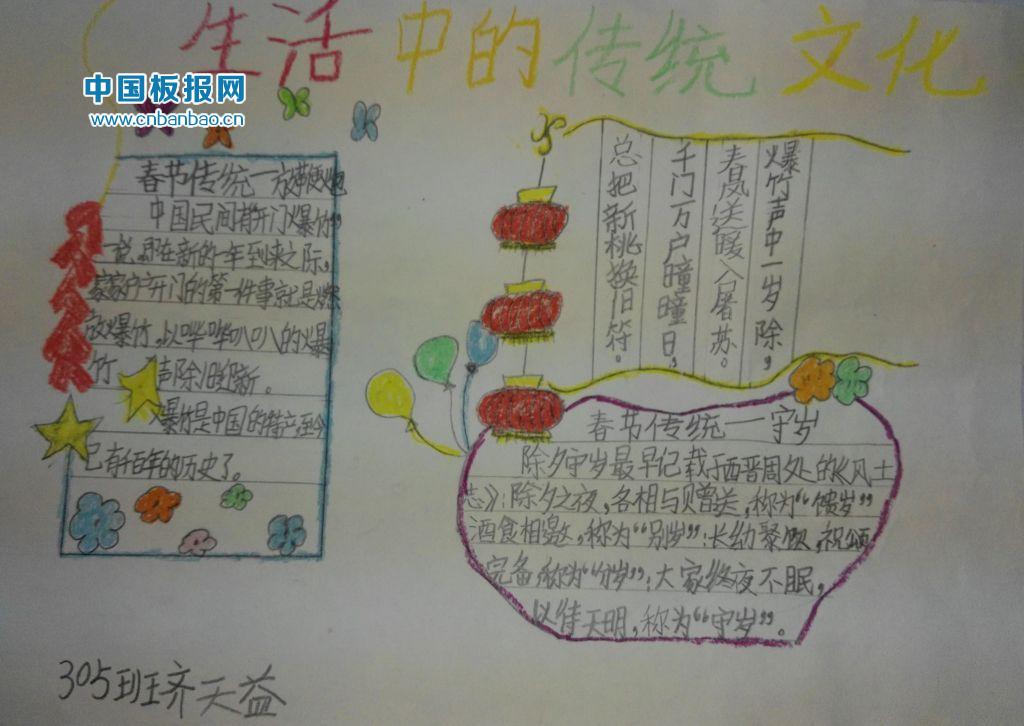 生活中的传统文化
中国板报网
www.cnbanbao.cn
春节传统一放鞭炮
中国民间有“开门爆竹”
一说,即在新的一年到来之际,
家家户户开门的第一件事就是燃
放爆竹,以哔哔叭叭的爆
竹声除旧迎新。
爆竹是中国的特产,至今
已有千百年的历史了。
爆竹声中一岁除,
春风送暖入屠苏。
千门万户曈曈日,
总把新桃换旧符。
春节传统一守岁
除夕守岁最早记载于西晋周处的《风土
志》:除夕之夜,各相与贝曾送,称为“馈岁”
酒食相邀,称为“别岁”:长幼聚饮,祝颂
完备,称为“分岁”:大家终夜不眠,
以待天明,称为“守岁”。
305班齐天益